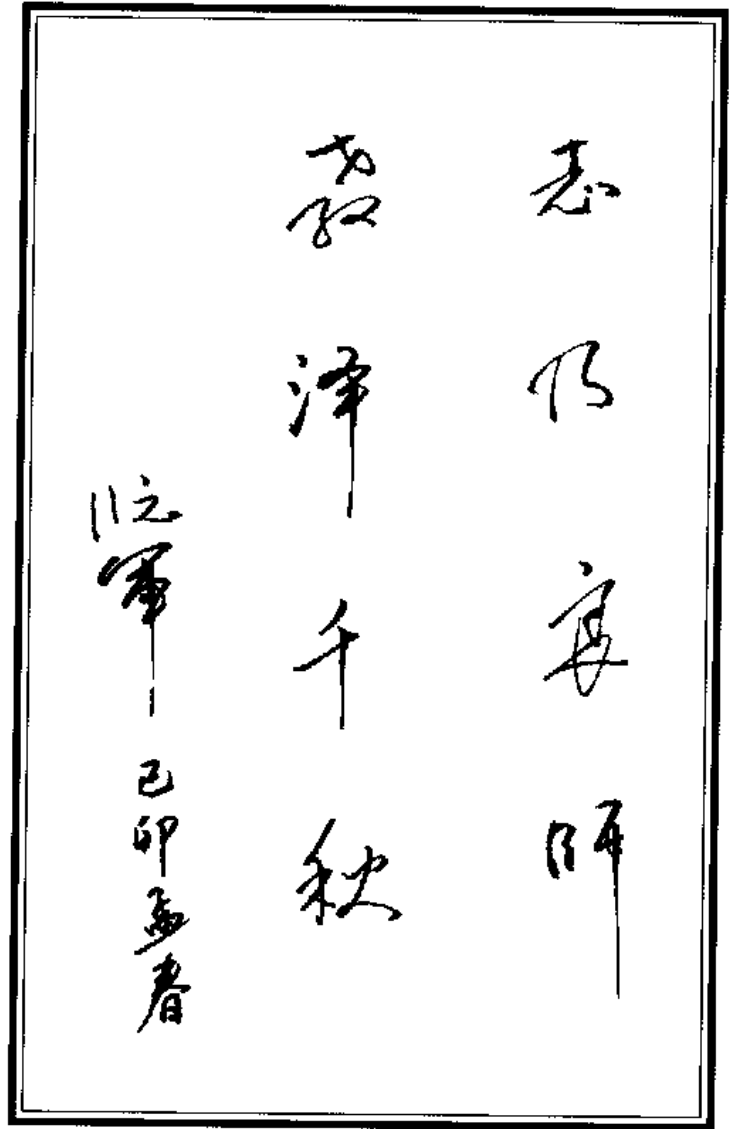 志乃良师
教泽千秋
己卯孟春